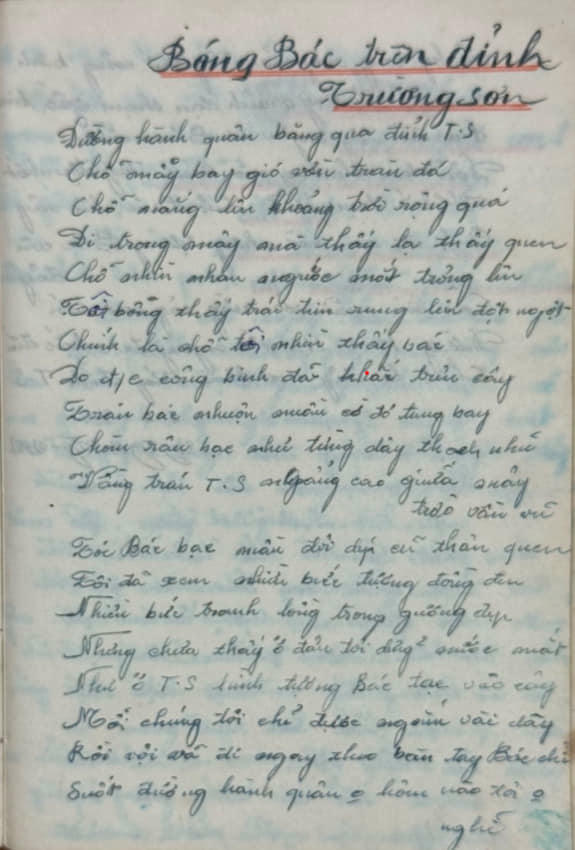 Bóng Bác trên đỉnh
Trường sơn
Đường hành quân băng qua đỉnh T.S
Chỗ mây bay gió vờn trán đá
Chỗ nắng lên khoảng trời rộng quá
Đi trong mây mà thấy lạ thấy quen
Chỗ nhìn nhau ngước mắt trông lên
Tôi bỗng thấy trái tim rung lên đột ngột
Chính là chỗ tôi nhìn thấy bác
Do đ/c công binh đã khắc trên cây
Trán bác nhuộm màu cờ đỏ tung bay
Chòm râu bạc như từng dây thạch nhũ
Vầng trán T.S ngẩng cao giữa mây
trời
Tóc Bác bạc màu đôi dép cũ thân quen
Tôi đã xem nhiều bức tượng đồng đen
Nhiều bức tranh lồng trong gương đẹp
Nhưng chưa thấy ở đâu tôi nước mắt
Như ở T.S hình tượng Bác tạc vào cây
Mỗi chúng tôi chỉ được ngắm vài dây
Rồi vội vã đi ngay theo bàn tay Bác chỉ
Suốt đường hành quân o hôm nào tôi o
nghỉ